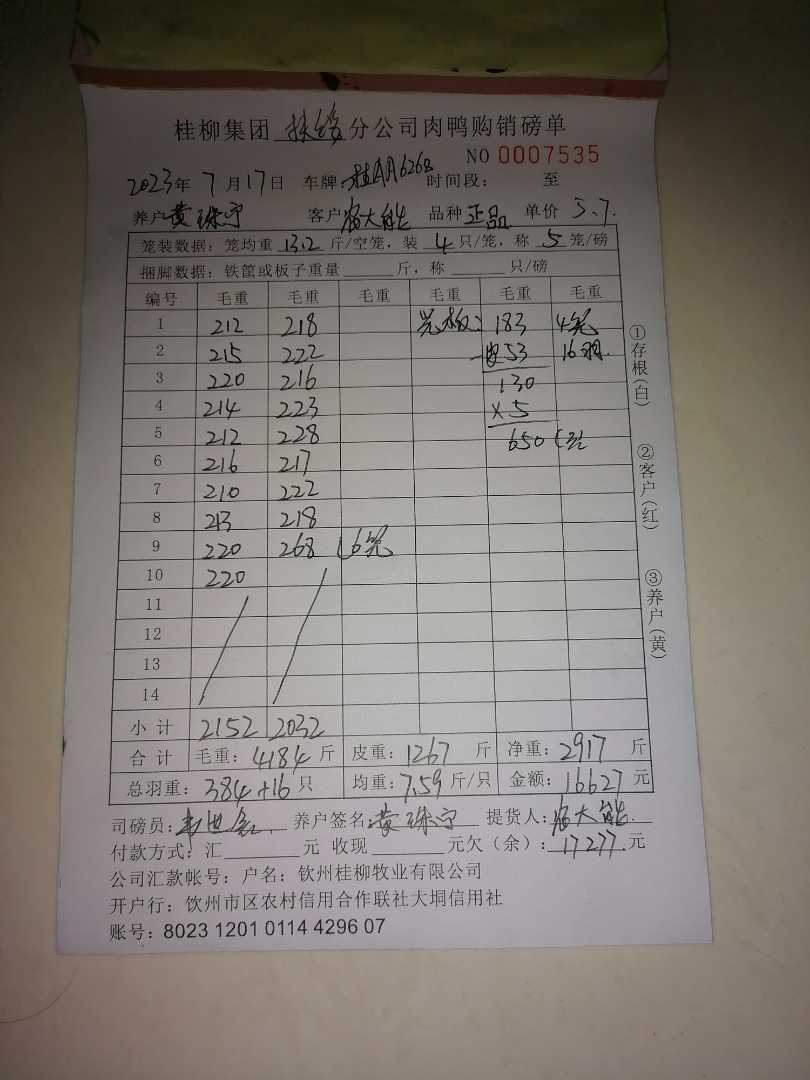 桂柳集团 扶绥 分公司肉鸭购销磅单
NO 0007535
2023年 7月17日 车牌: 桂AA6268 时间段: 至
养户 黄珠宁 客户 大能 品种 正品 单价 5.7.
笼装数据: 笼均重 13.2 斤/空笼, 装 4 只/笼, 称 5 笼/磅
捆脚数据: 铁筐或板子重量 斤, 称 只/磅
编号 毛重 毛重 毛重 毛重 毛重 毛重
1 212 218 183 4笼
2 215 222 53 16羽.
3 220 216 130
4 214 223 ×5
5 212 228 650
6 216 217
7 210 222
8 213 218
9 220 268 (6笼
10 220
11
12
13
14
小计 2152 2032
合计 毛重: 4184 斤 皮重: 1267 斤 净重: 2917 斤
总羽重: 384+16 只 均重: 7.59 斤/只 金额: 16627 元
司磅员: 养户签名: 黄珠宁 提货人: 大能.
付款方式: 汇 元 收现 元欠(余): 17277.元
公司汇款帐号: 户名: 钦州桂柳牧业有限公司
开户行: 钦州市区农村信用合作联社大垌信用社
账号: 8023 1201 0114 4296 07
①存根(白)
②客户(红)
③养户(黄)